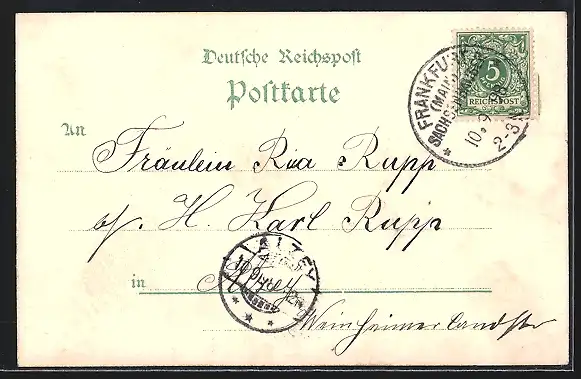 Deutsche Reichspost
Postkarte
5
REICHSPOST
FRANKFURT
(MAIN)
SACHSENHAUSEN
10. 9. 98
2-3 N
An
Fräulein Ria Rupp
H. Karl Rupp
ALZEY
in Alzey
Weinheimerlandstr